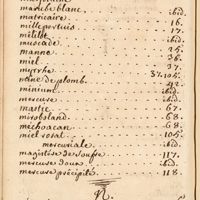 marube blanc, . . . . . . . . ibid.
matricaire . . . . . . . . 16.
millepertuis . . . . . . . . 17.
melilot . . . . . . . . ibid.
muscade . . . . . . . . 25.
manne . . . . . . . . 36.
miel . . . . . . . . 37.
myrrhe . . . . . . . . 37. 104.
mine de plomb. . . . . . . . 92.
minium . . . . . . . . ibid.
mercure . . . . . . . . ibid.
mastic . . . . . . . . 67.
miroboland . . . . . . . . 68.
mechoacan . . . . . . . . 68.
miel rosat . . . . . . . . 105.
mercuriale . . . . . . . . ibid.
magistere de soufre . . . . . . . . 117.
mercure doux . . . . . . . . ibid.
mercure precipité . . . . . . . . 118.
N.